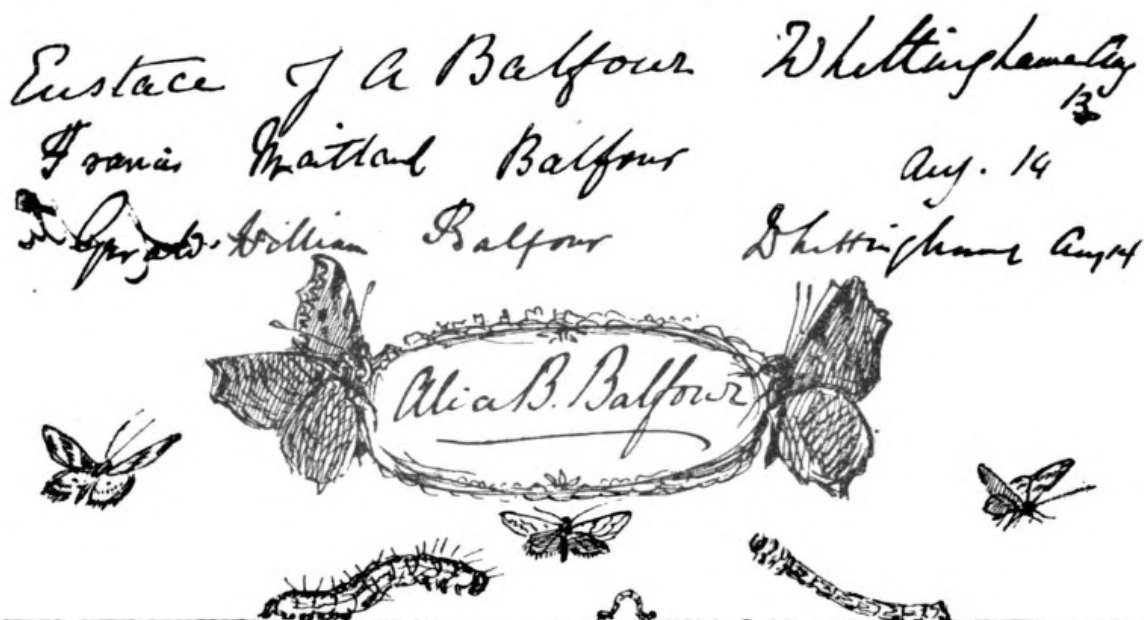 Eustace J A Balfour Whittinghame Aug 13
Francis Maitland Balfour Aug. 14
Gerald William Balfour Whittinghame Aug 14
Alice B. Balfour